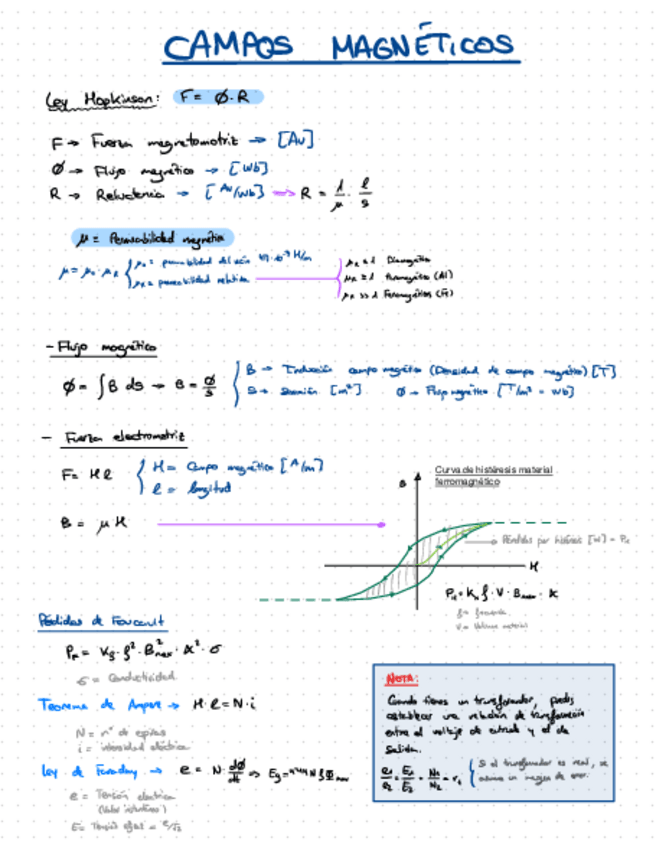 CAMPOS MAGNÉTICOS
Ley Hopkinson: F = Ø·R
F → Fuerza magnetomotriz → [Av]
Ø → Flujo magnético → [Wb]
R → Reluctancia → [Av/Wb] → R = 1/μ · l/s
μ = Permeabilidad magnética
μ = μ₀ · μR { μ₀ = permeabilidad del vacío H/m
μR = permeabilidad relativa
μR ≤ 1 Diamagnético
μR ≥ 1 (Al)
μR >> 1 Ferromagnéticos (Fe)
- Flujo magnético
Ø = ∫ B ds → B = Ø/s
B → Inducción campo magnético (Densidad de campo magnético) [T]
S → Sección [m²] Ø → Flujo magnético [T/m² = Wb]
- Fuerza electromotriz
F = H l { H = Campo magnético [A/m]
l = longitud
B = μ H
Curva de histéresis material
ferromagnético
B
H
Pérdidas por histéresis [W] = PH
PH = Kh f · V · Bmax · α
f = frecuencia
V = Volumen material
Pérdidas de Foucault
= Kf · f² · B²max · α² · σ
σ = Conductividad
Teorema de Ampere → H · l = N · i
N = nº de espiras
i = intensidad eléctrica
Ley de Faraday → e = N · dØ/dt ⇒
e = Tensión eléctrica
(Valor instantáneo)
E = Tensión eficaz = e/√2
NOTA:
Cuando tienes un transformador, puedes
establecer una relación de transformación
entre el voltaje de entrada y el de
salida.
e1/e2 = E1/E2 = N1/N2 = rt
Si el transformador es real, se
asume un margen de error.